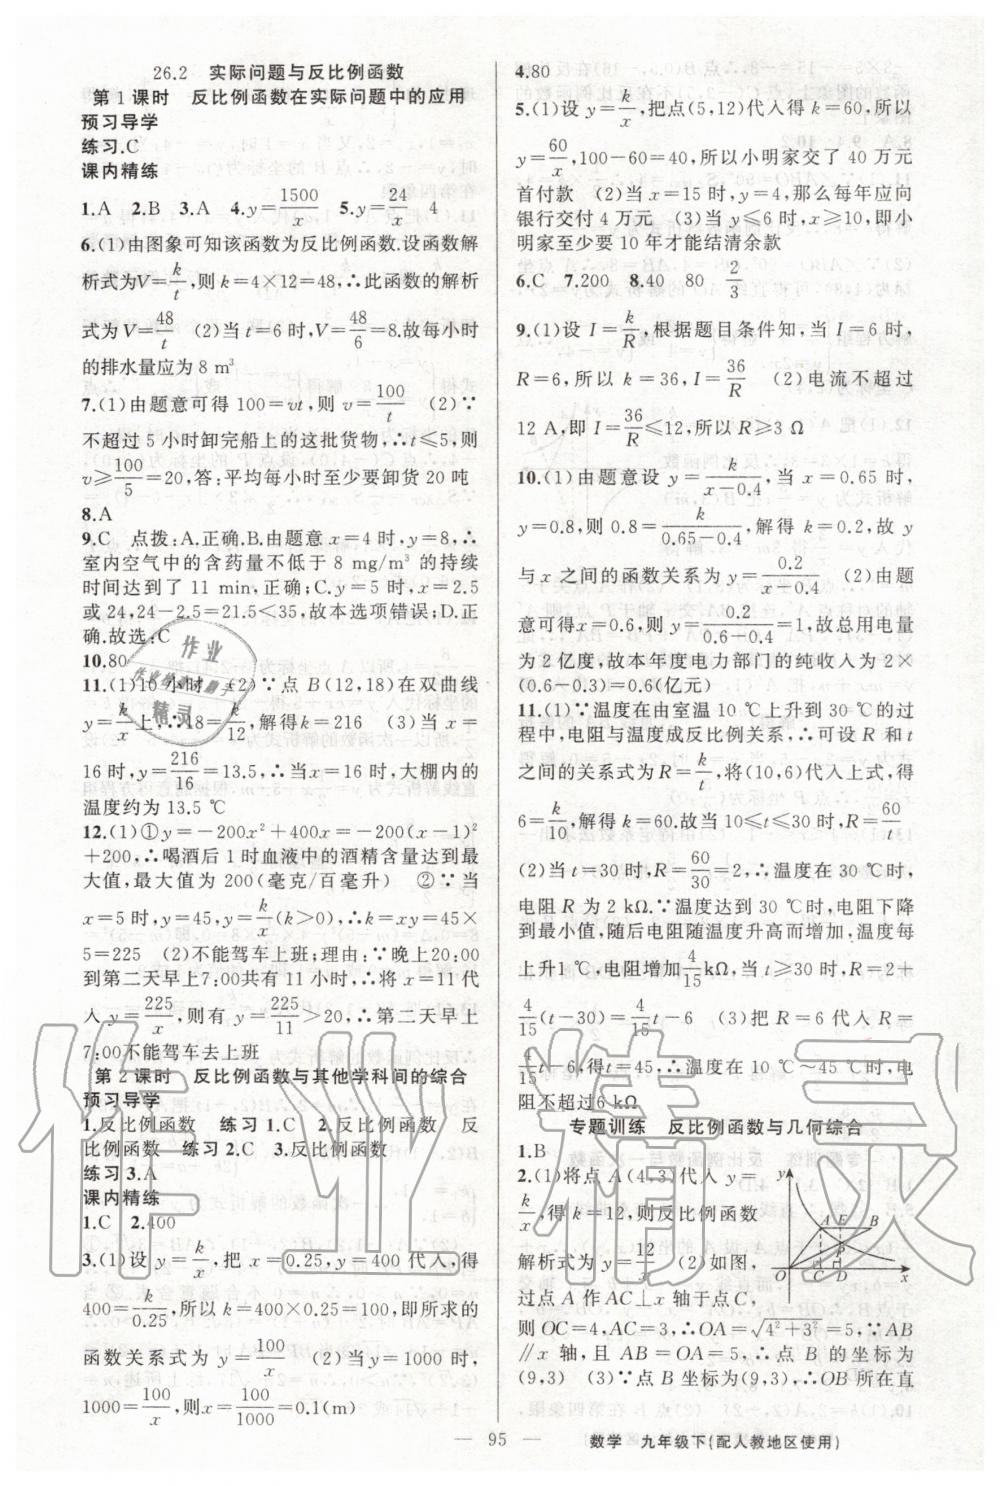 26.2 实际问题与反比例函数
第1课时 反比例函数在实际问题中的应用
预习导学
练习.C
课内精练
1.A 2.B 3.A 4.y=1500/x 5.y=24/x 4
6.(1)由图象可知该函数为反比例函数.设函数解
析式为V=k/t,则k=4×12=48,∴此函数的解析
式为V=48/t (2)当t=6时,V=48/6=8.故每小时
的排水量应为8 m³
7.(1)由题意可得100=vt,则v=100/t (2)∵
不超过5小时卸完船上的这批货物,∴t≤5,则
v≥100/5=20,答:平均每小时至少要卸货20吨
8.A
9.C 点拨:A.正确.B.由题意x=4时,y=8,∴
室内空气中的含药量不低于8 mg/m³的持续
时间达到了11 min,正确;C.y=5时,x=2.5
或24,24-2.5=21.5<35,故本选项错误;D.正
确.故选:C
10.80
11.(1)10小时 (2)∵点B(12,18)在双曲线
y=k/x上,∴18=k/12,解得k=216 (3)当x=
16时,y=216/16=13.5,∴当x=16时,大棚内的
温度约为13.5 ℃
12.(1)①y=-200x²+400x=-200(x-1)²
+200,∴喝酒后1时血液中的酒精含量达到最
大值,最大值为200(毫克/百毫升) ②∵当
x=5时,y=45,y=k/x(k>0),∴k=xy=45×
5=225 (2)不能驾车上班;理由:∵晚上20:00
到第二天早上7:00共有11小时,∴将x=11代
入y=225/x,则有y=225/11>20,∴第二天早上
7:00不能驾车去上班
第2课时 反比例函数与其他学科间的综合
预习导学
1.反比例函数 练习1.C 2.反比例函数 反
比例函数 练习2.C 3.反比例函数
练习3.A
课内精练
1.C 2.400
3.(1)设y=k/x,把x=0.25,y=400代入,得
400=k/0.25,所以k=400×0.25=100,即所求的
函数关系式为y=100/x (2)当y=1000时,
1000=100/x,则x=100/1000=0.1(m)
4.80
5.(1)设y=k/x,把点(5,12)代入得k=60,所以
y=60/x,100-60=40,所以小明家交了40万元
首付款 (2)当x=15时,y=4,那么每年应向
银行交付4万元 (3)当y≤6时,x≥10,即小
明家至少要10年才能结清余款
6.C 7.200 8.40 80 2/3
9.(1)设I=k/R,根据题目条件知,当I=6时,
R=6,所以k=36,I=36/R (2)电流不超过
12 A,即I=36/R≤12,所以R≥3 Ω
10.(1)由题意设y=k/(x-0.4),当x=0.65时,
y=0.8,则0.8=k/(0.65-0.4),解得k=0.2,故y
与x之间的函数关系为y=0.2/(x-0.4) (2)由题
意可得x=0.6,则y=0.2/(0.6-0.4)=1,故总用电量
为2亿度,故本年度电力部门的纯收入为2×
(0.6-0.3)=0.6(亿元)
11.(1)∵温度在由室温10 ℃上升到30 ℃的过
程中,电阻与温度成反比例关系,∴可设R和t
之间的关系式为R=k/t,将(10,6)代入上式,得
6=k/10,解得k=60.故当10≤t≤30时,R=60/t
(2)当t=30时,R=60/30=2,∴温度在30 ℃时,
电阻R为2 kΩ.∵温度达到30 ℃时,电阻下降
到最小值,随后电阻随温度升高而增加,温度每
上升1℃,电阻增加4/15kΩ,当t≥30时,R=2+
4/15(t-30)=4/15t-6 (3)把R=6代入R=
4/15t-6,得t=45,∴温度在10 ℃~45 ℃时,电
阻不超过6 kΩ
专题训练 反比例函数与几何综合
1.B
2.(1)将点A(4,3)代入y=
k/x,得k=12,则反比例函数
解析式为y=12/x (2)如图,
过点A作AC⊥x轴于点C,
则OC=4,AC=3,∴OA=√(4²+3²)=5,∵AB
∥x轴,且AB=OA=5,∴点B的坐标为
(9,3) (3)∵点B坐标为(9,3),∴OB所在直
y
A E B
P
O C D x
— 95 — 数学 九年级下(配人教地区使用)
作业
作业精灵
精灵
作业精灵